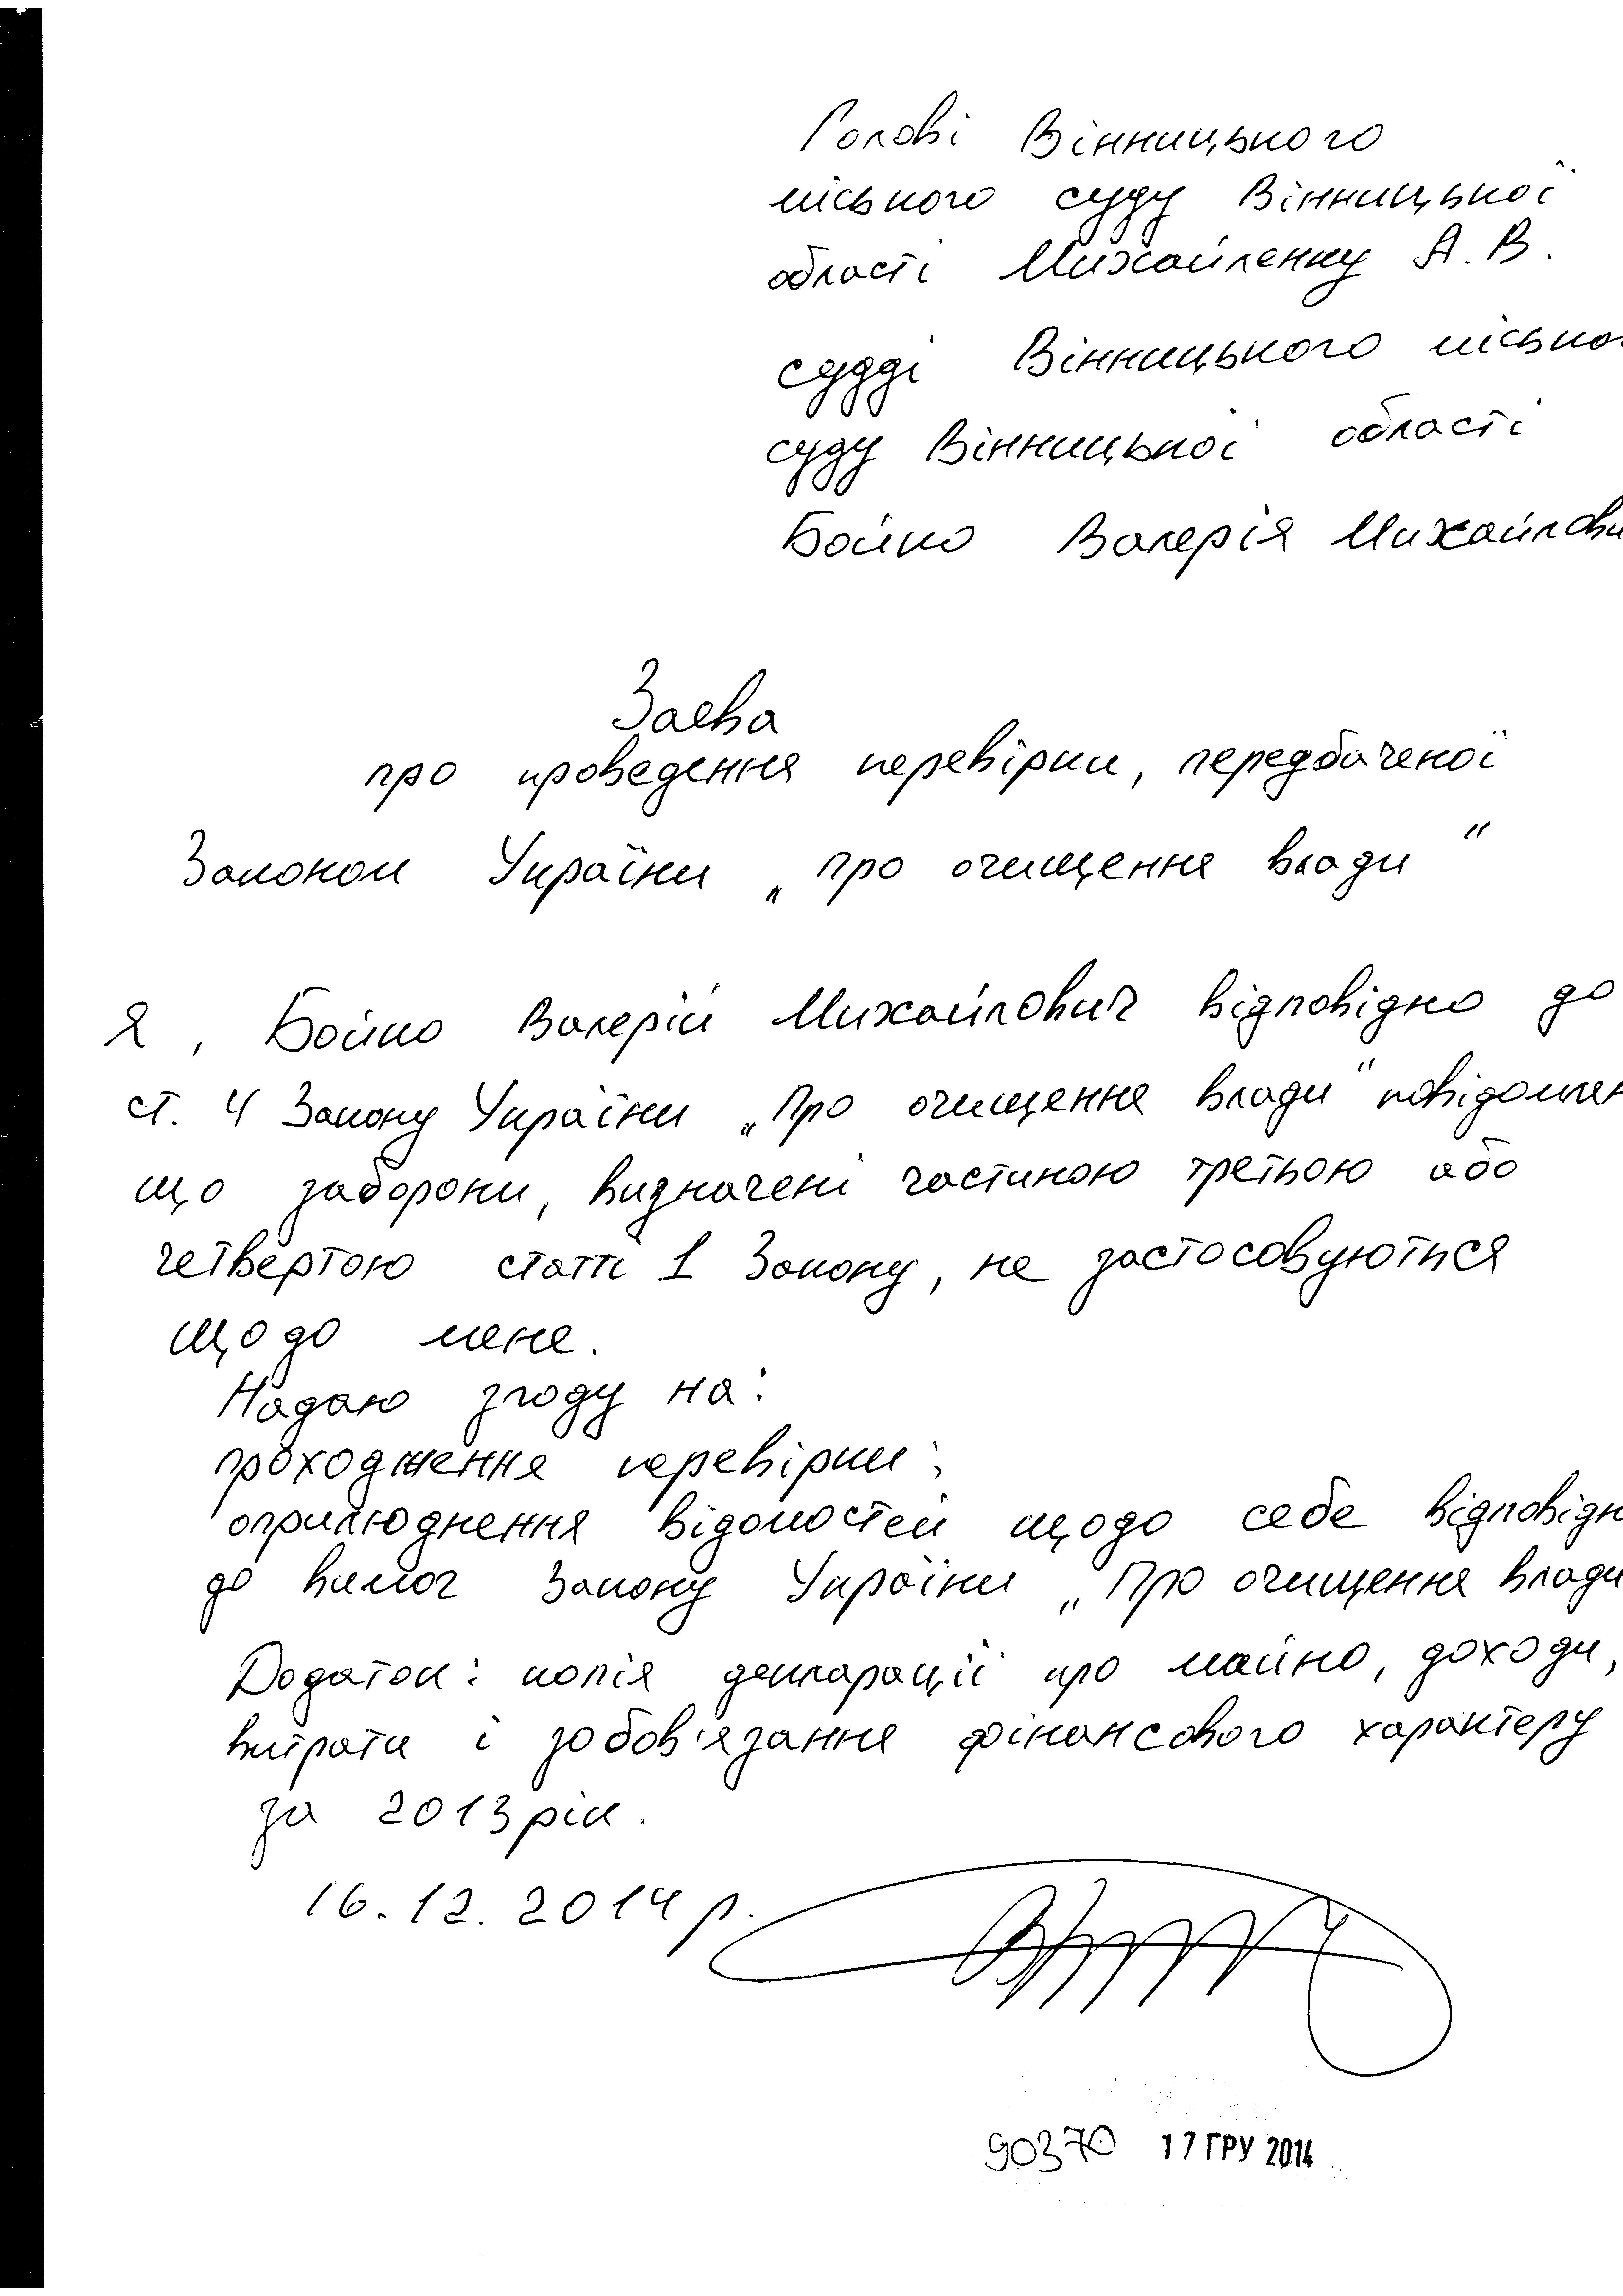 Голові Вінницького
міського суду Вінницької
області Михайленку А. В.
судді Вінницького місько
суду Вінницької області
Бойко Валерія Михайлови
Заява
про проведення перевірки, передбаченої
Законом України „про очищення влади"
Я, Бойко Валерій Михайлович відповідно до
ст. 4 Закону України „Про очищення влади" повідомляю
що заборони, визначені частиною третьою або
четвертою статті 1 Закону, не застосовуються
щодо мене.
Надаю згоду на:
проходження перевірки;
оприлюднення відомостей щодо себе відповідн
до вимог Закону України „Про очищення влади
Додаток: копія декларації про майно, доходи,
витрати і зобов'язання фінансового характеру
за 2013 рік.
16.12.2014 р.
90370 17 ГРУ 2014